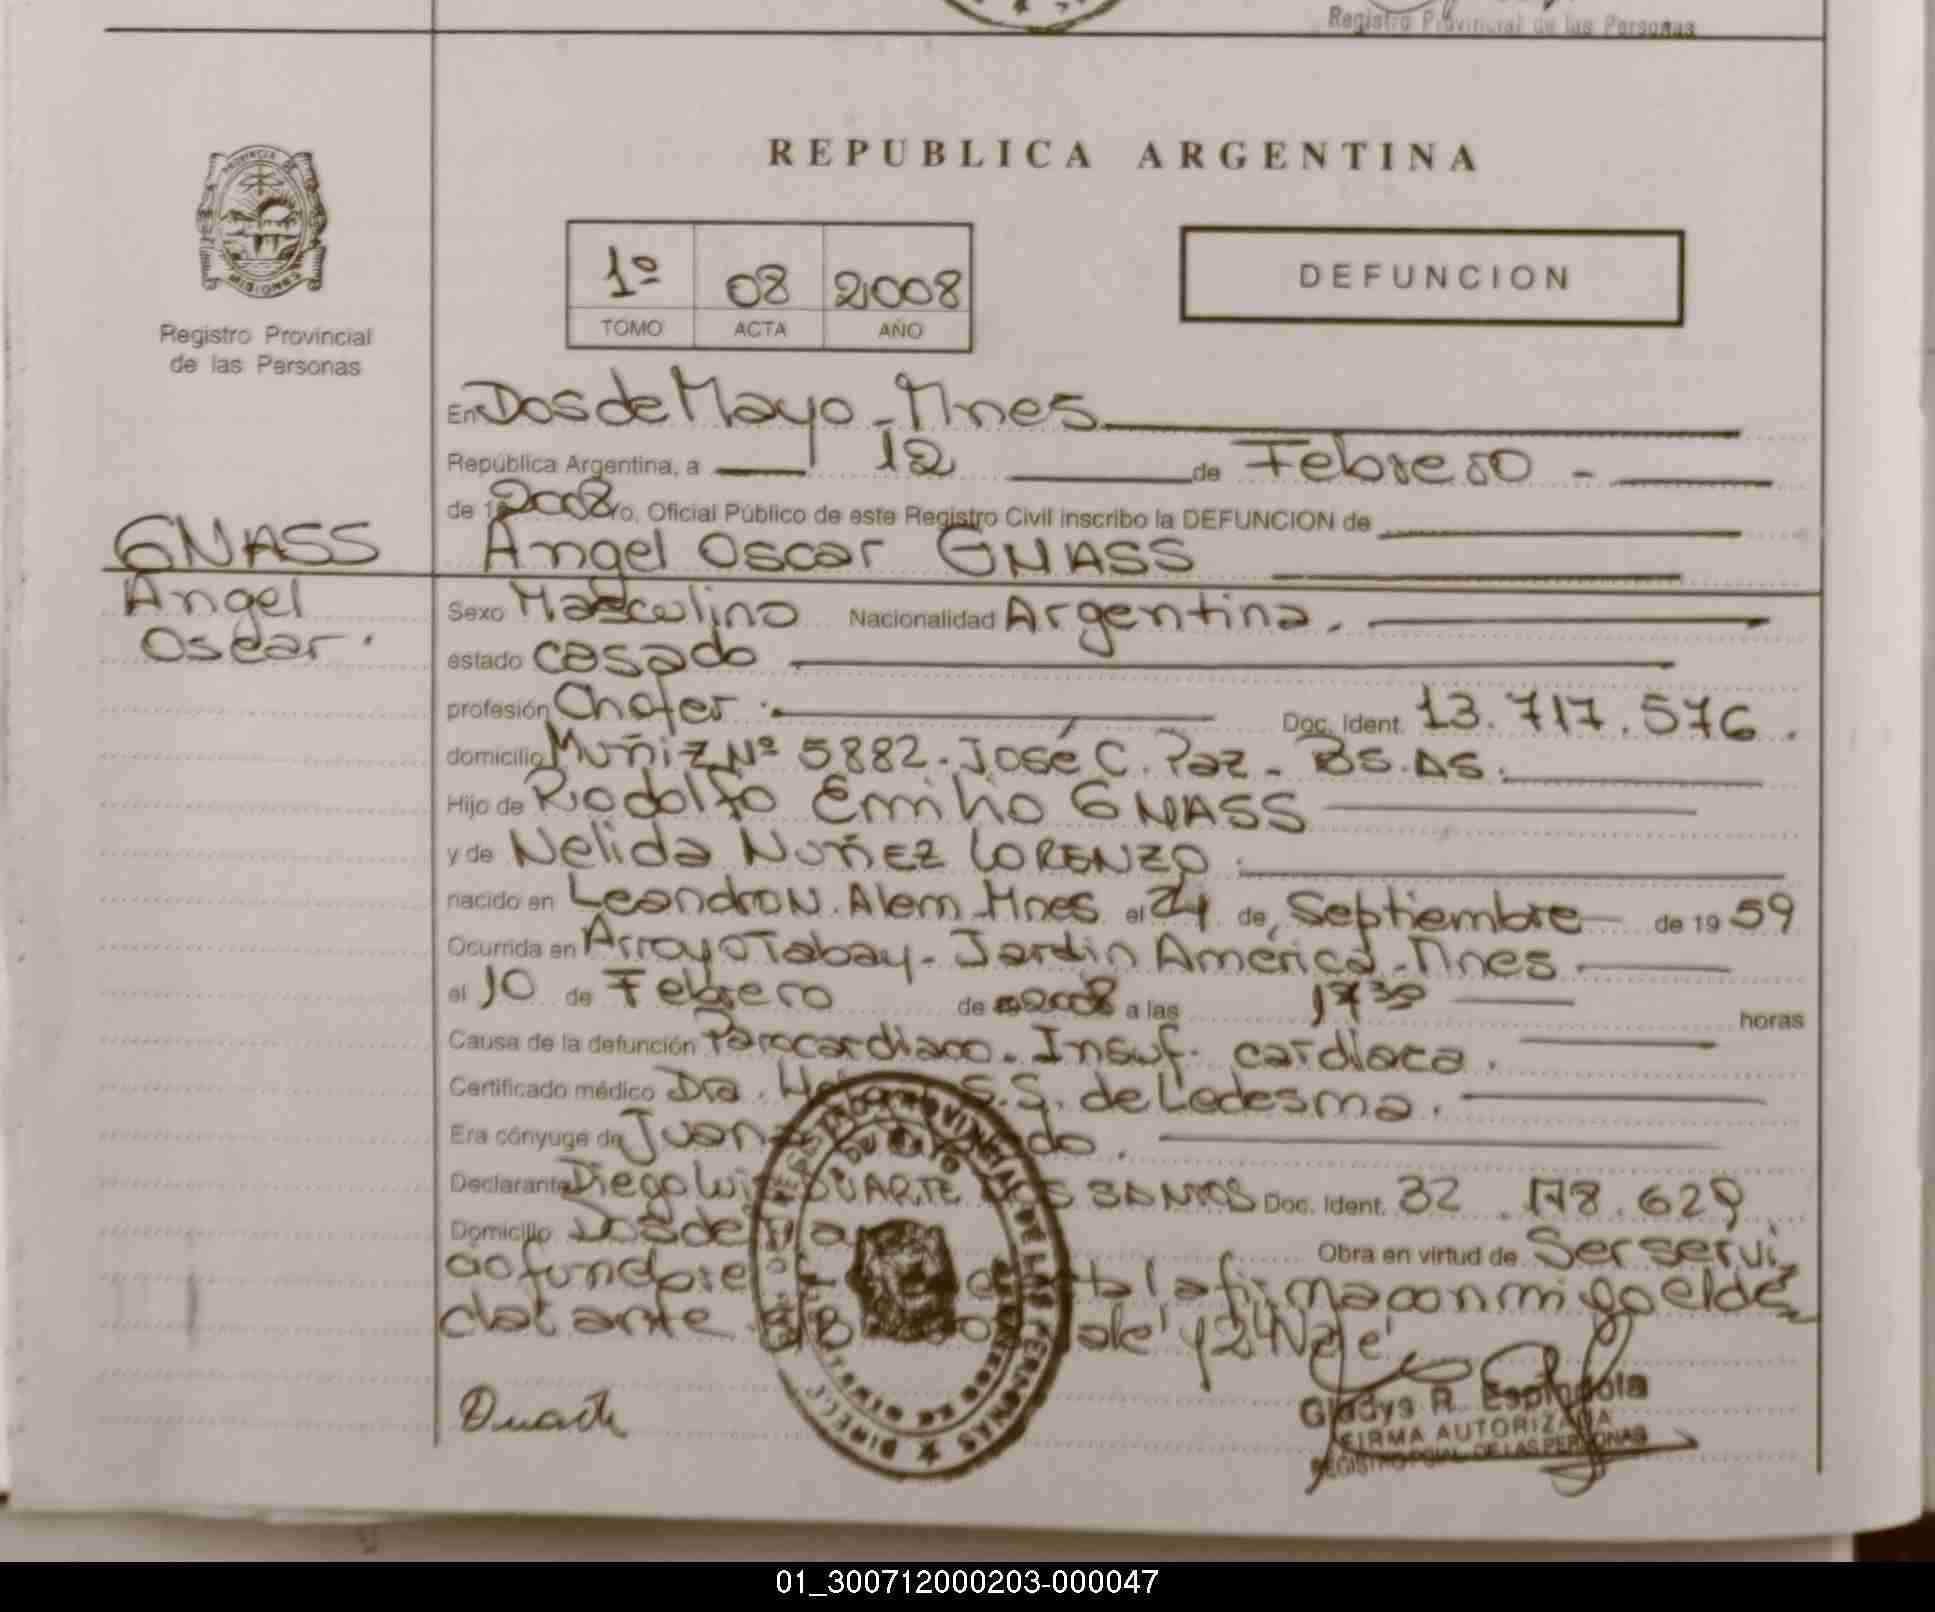 Registro Provincial de las Personas
REPUBLICA ARGENTINA
PROVINCIA DE
MISIONES
1º 08 2008
TOMO ACTA AÑO
DEFUNCION
Registro Provincial
de las Personas
En Dos de Mayo - Mnes
República Argentina, a 12 de Febrero -
de 2008 yo, Oficial Público de este Registro Civil inscribo la DEFUNCION de
GNASS
Angel
Oscar.
Angel Oscar GNASS
Sexo Masculino Nacionalidad Argentina.
estado casado
profesión Chofer. Doc. Ident. 13.717.576.
domicilio Muñiz Nº 5882. José C. Paz - BS.AS.
Hijo de Rodolfo Emilio GNASS
y de Nelida NUÑEZ LORENZO.
nacido en Leandro N. Alem - Mnes el de Septiembre de 19 59
Ocurrida en Arroyo Tabay - Jardín América - Mnes
el 10 de Febrero de 2008 a las 17 30 horas
Causa de la defunción Parocardiaco. Insuf. cardíaca.
Certificado médico Dra. S.S. de Ledesma.
Era cónyuge de Juana
Declarante Diego Luis DUARTE DOS SANTOS Doc. Ident. 32.178.629
Domicilio Dos de Mayo Obra en virtud de Ser servi
cio funebre la firma conmigo el de
clarante vale y
Duarte
Gladys R. Espíndola
FIRMA AUTORIZADA
REGISTRO PCIAL. DE LAS PERSONAS
01_300712000203-000047